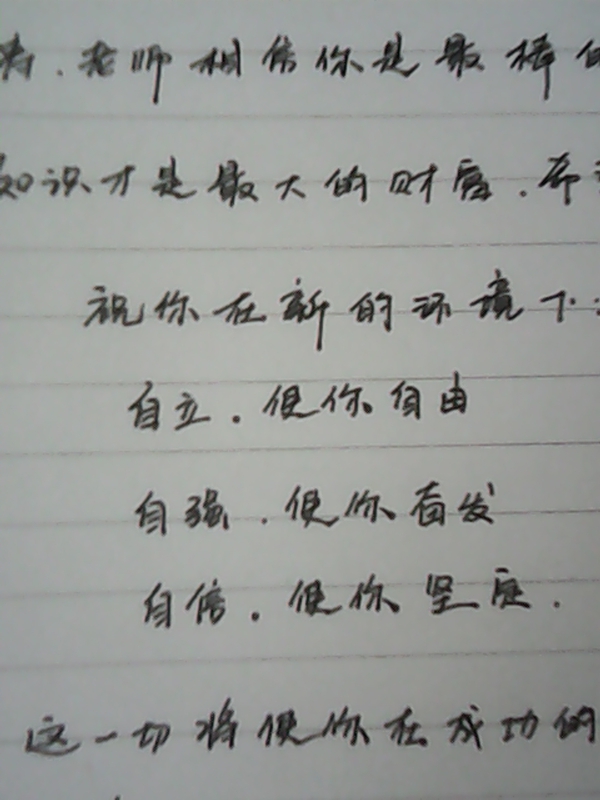 老师相信你是最棒
知识才是最大的财富.希
祝你在新的环境下:
自立.使你自由
自强.使你奋发
自信.使你坚定.
这一切将使你在成功的